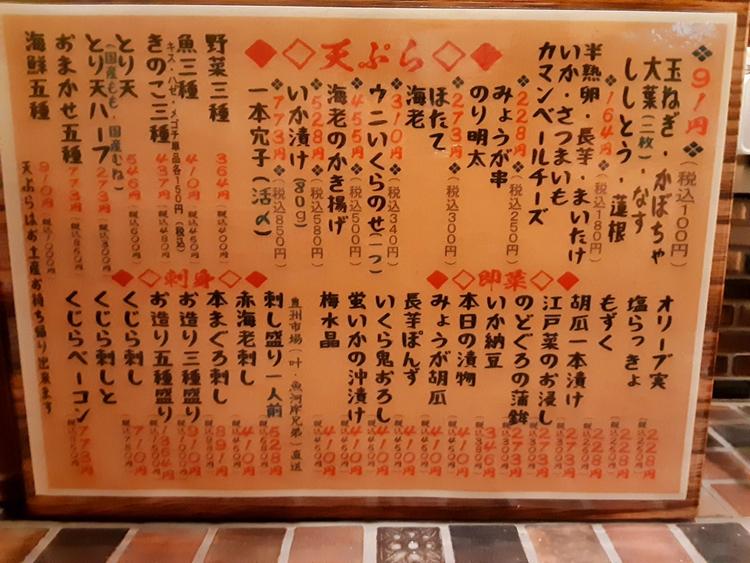 ◆◇天ぷら◇◆
❖91円❖(税込100円)
玉ねぎ・かぼちゃ
大葉(二枚)・なす
ししとう・蓮根
❖164円❖(税込180円)
半熟卵・長芋・まいたけ
いか・さつまいも
カマンベールチーズ
❖228円❖(税込250円)
みょうが串
のり明太
❖273円❖(税込300円)
ほたて
海老
❖310円❖(税込340円)
ウニいくらのせ(一つ)
❖455円❖(税込500円)
海老のかき揚げ
❖528円❖(税込580円)
いか漬け(80g)
❖773円❖(税込850円)
一本穴子(活〆)
野菜三種 364円(税込400円)
魚三種 410円(税込450円)
キス・ハゼ・メゴチ単品各150円(税込)
きのこ三種 437円(税込480円)
とり天 546円(税込600円)
(国産もも・国産むね)
とり天ハーフ 273円(税込300円)
おまかせ五種 773円(税込850円)
海鮮五種 910円
天ぷらはお土産お持ち帰り出来ます
◆◇即菜◇◆
オリーブ実 228円(税込250円)
塩らっきょ 228円(税込250円)
もずく 228円(税込250円)
胡瓜一本漬け
江戸菜のお浸し 273円(税込300円)
のどぐろの蒲鉾 273円(税込300円)
いか納豆
本日の漬物
みょうが胡瓜
長芋ぽんず 410円(税込450円)
いくら鬼おろし 410円(税込450円)
蛍いかの沖漬け 410円(税込450円)
梅水晶 410円(税込450円)
◆◇刺身◇◆
豊州市場(叶・魚河岸兄弟)直送
刺し盛り一人前 528円
赤海老刺し 410円(税込450円)
本まぐろ刺し 891円(税込980円)
お造り三種盛り 910円
お造り五種盛り 1364円
くじら刺し 710円
くじら刺しと
くじらベーコン 773円(税込850円)